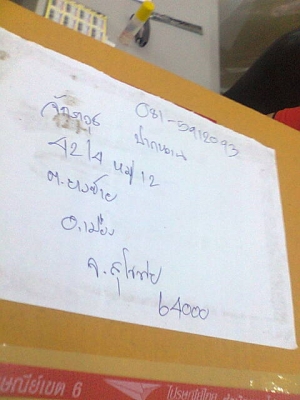 081-5912093
42/4 หมู่ 12
ต.ยางซ้าย
อ.เมือง
จ.สุโขทัย
64000
ษณีย์เขต 6
ไปรษณีย์ไทย